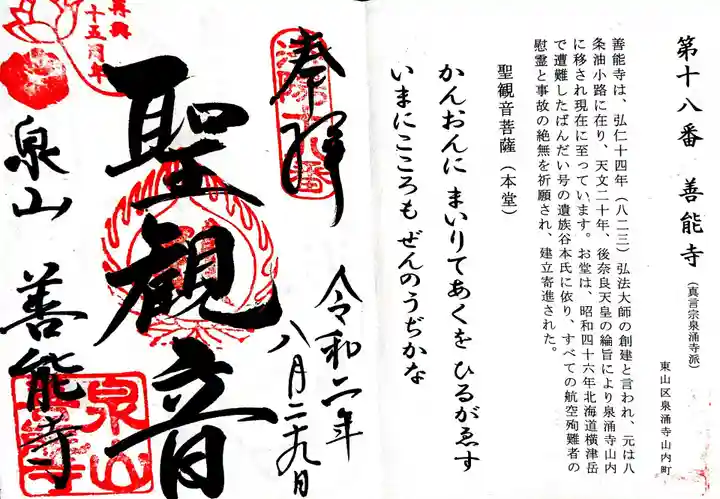 第十八番 善能寺(真言宗泉涌寺派)
東山区泉涌寺山内町
善能寺は、弘仁十四年(八二三)弘法大師の創建と言われ、元は八
条油小路に在り、天文二十年、後奈良天皇の綸旨により泉涌寺山内
に移され現在に至っています。お堂は、昭和四十六年北海道横津岳
で遭難したばんだい号の遺族谷本氏に依り、すべての航空殉難者の
慰霊と事故の絶無を祈願され、建立寄進された。
聖観音菩薩(本堂)
かんおんに まいりてあくを ひるがゑす
いまにこころも ぜんのうぢかな
奉拝
令和二年
八月二十九日
聖観音
泉山 善能寺
再興
十五周年
泉山